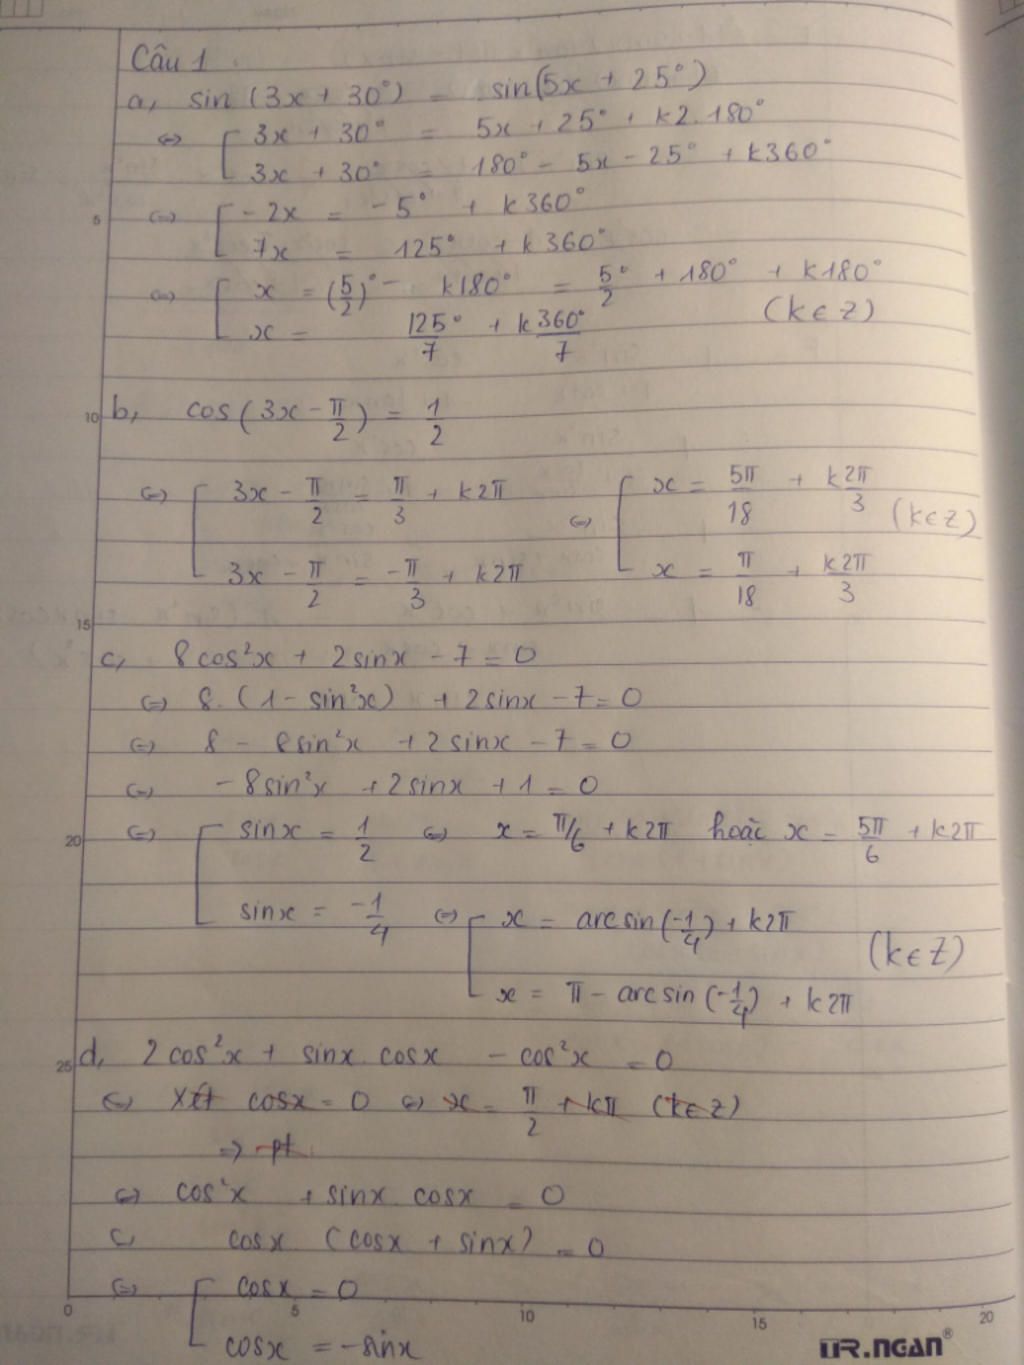 Câu 1
a, sin (3x + 30°) = sin(5x + 25°)
⇔ [ 3x + 30° = 5x + 25° + k2.180°
3x + 30° = 180° - 5x - 25° + k360°
⇔ [ -2x = -5° + k360°
7x = 125° + k360°
⇔ [ x = (5/2)° - k180° = 5°/2 + 180° + k180°
x = 125°/7 + k360°/7 (k∈Z)
b, cos(3x - π/2) = 1/2
⇔ [ 3x - π/2 = π/3 + k2π ⇔ [ x = 5π/18 + k2π/3 (k∈Z)
3x - π/2 = -π/3 + k2π x = π/18 + k2π/3
c, 8cos²x + 2sinx - 7 = 0
⇔ 8.(1 - sin²x) + 2sinx - 7 = 0
⇔ 8 - 8sin²x + 2sinx - 7 = 0
⇔ -8sin²x + 2sinx + 1 = 0
⇔ [ sinx = 1/2 ⇔ x = π/6 + k2π hoặc x = 5π/6 + k2π
sinx = -1/4 ⇔ [ x = arcsin(-1/4) + k2π (k∈Z)
x = π - arcsin(-1/4) + k2π
d, 2cos²x + sinx.cosx - cos²x = 0
⇔ Xét cosx = 0 ⇔ x = π/2 + kπ (k∈Z)
⇒ pt
⇔ cos²x + sinx cosx = 0
⇔ cosx (cosx + sinx) = 0
⇔ [ cosx = 0
cosx = -sinx
5
10
15
20
25
0 5 10 15 20
TR.NGAN®